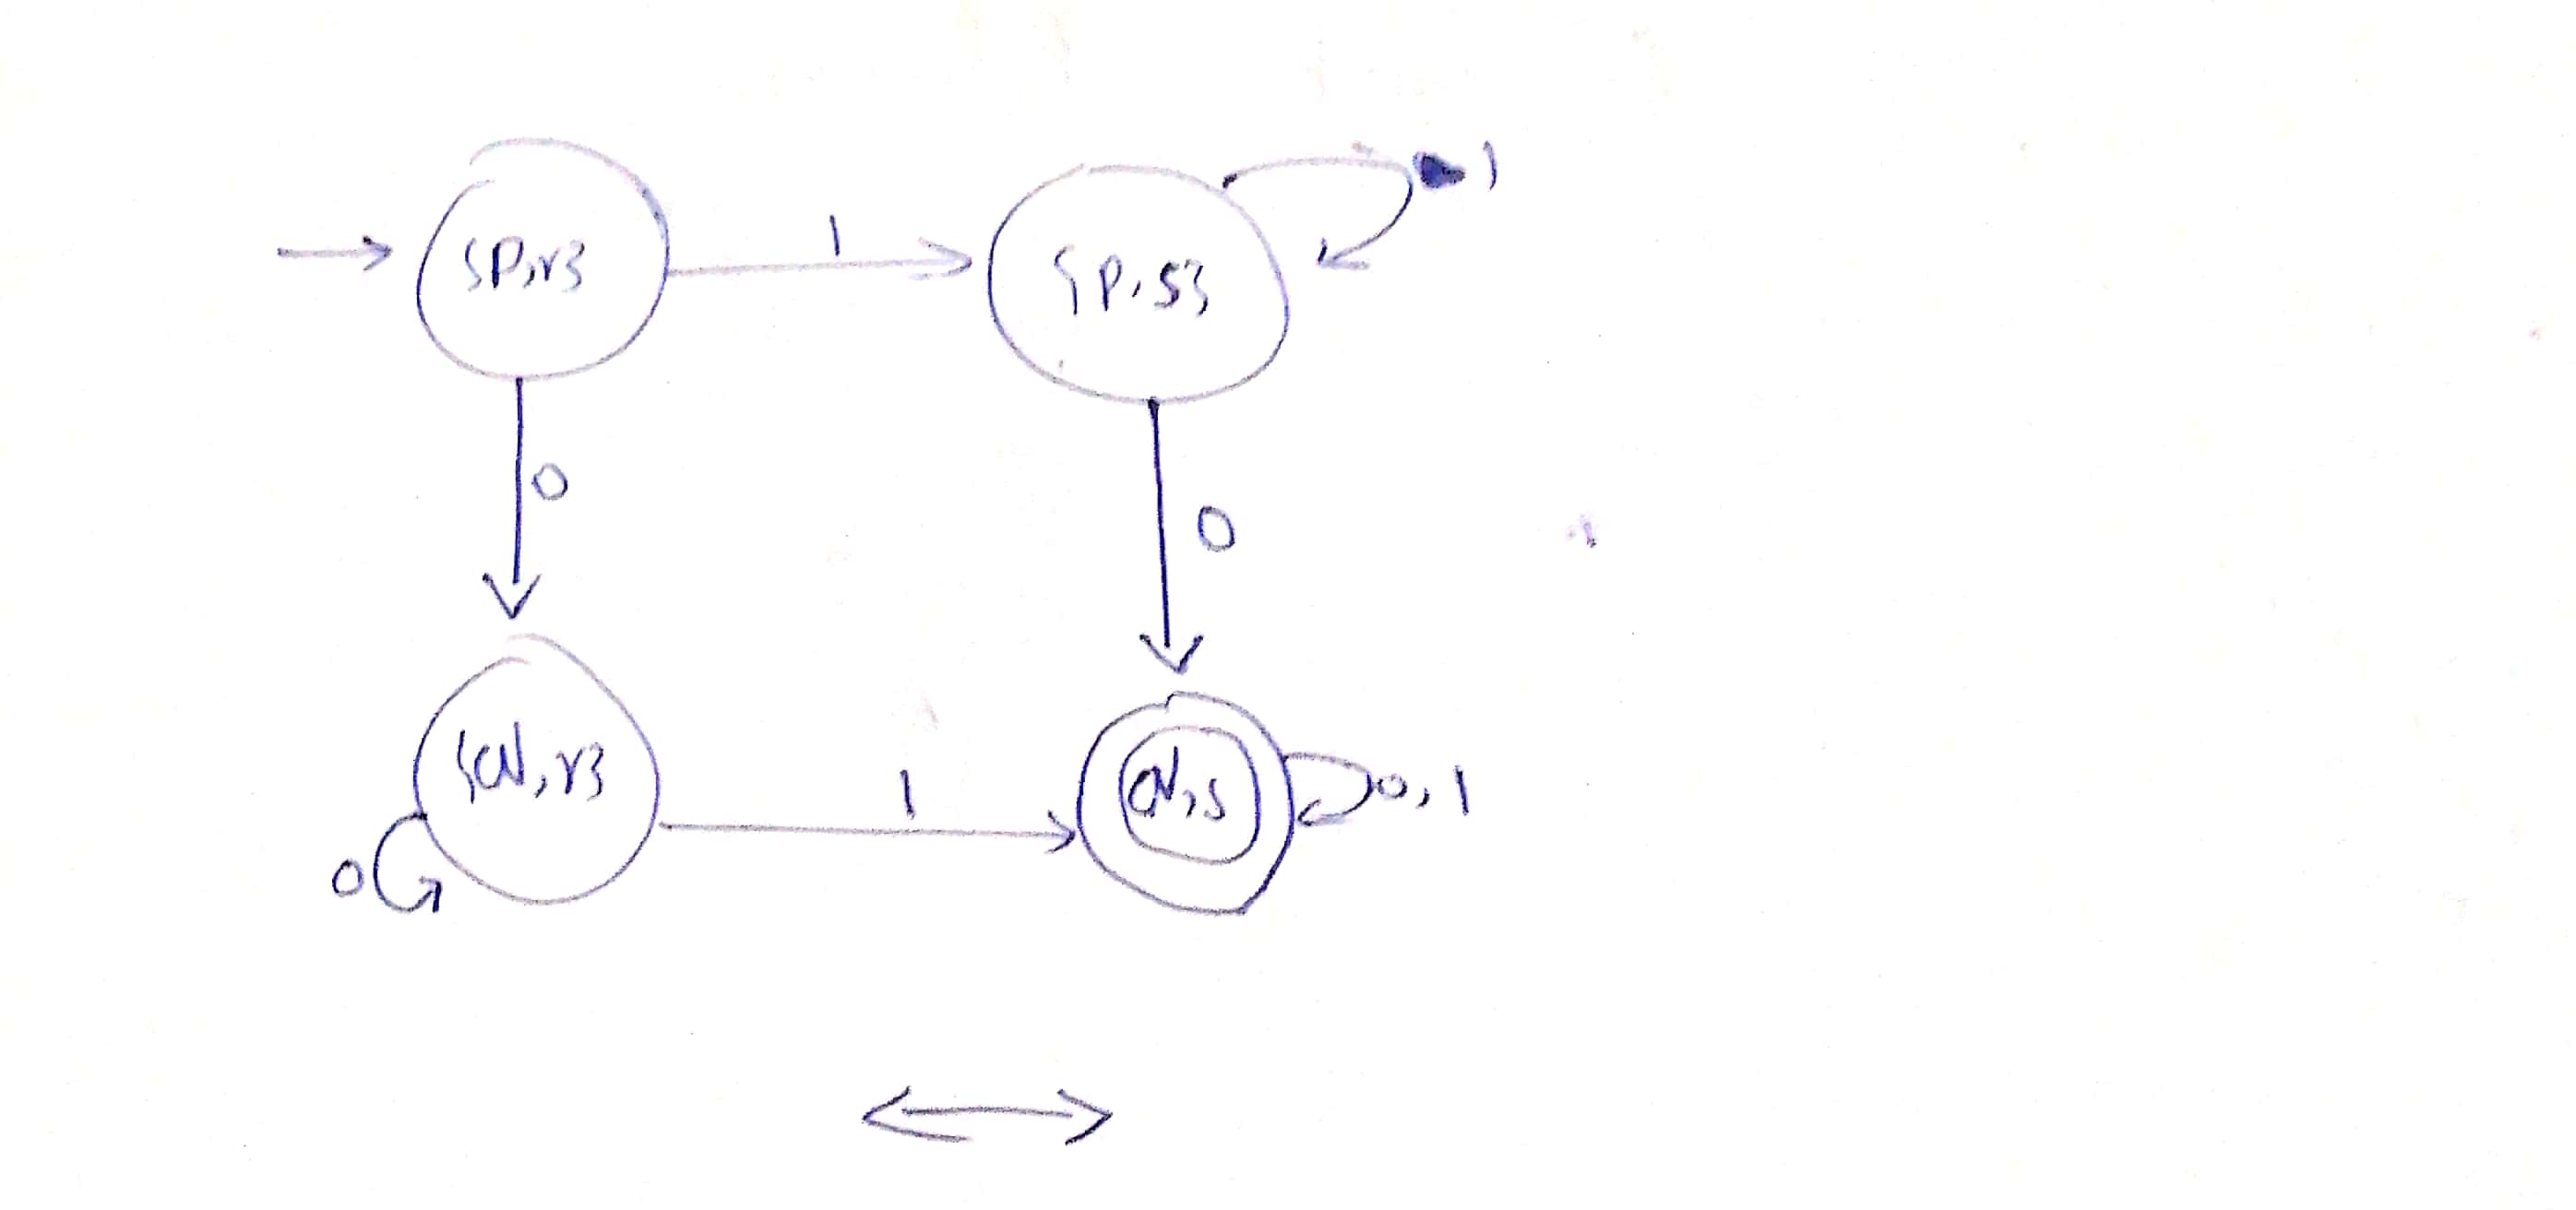 {p,r}
1
{p,s}
1
0
0
{q,r}
0
1
q,s
0,1